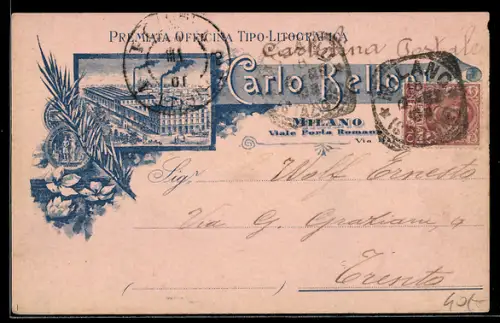 PREMIATA OFFICINA TIPO-LITOGRAFICA
Cartolina Postale
Carlo Bello
MILANO
Viale Porta Romana
Via
MILANO
Sig. Wolf Ernesto
Via G. Graziani, 9
Trento
(
)
40/-